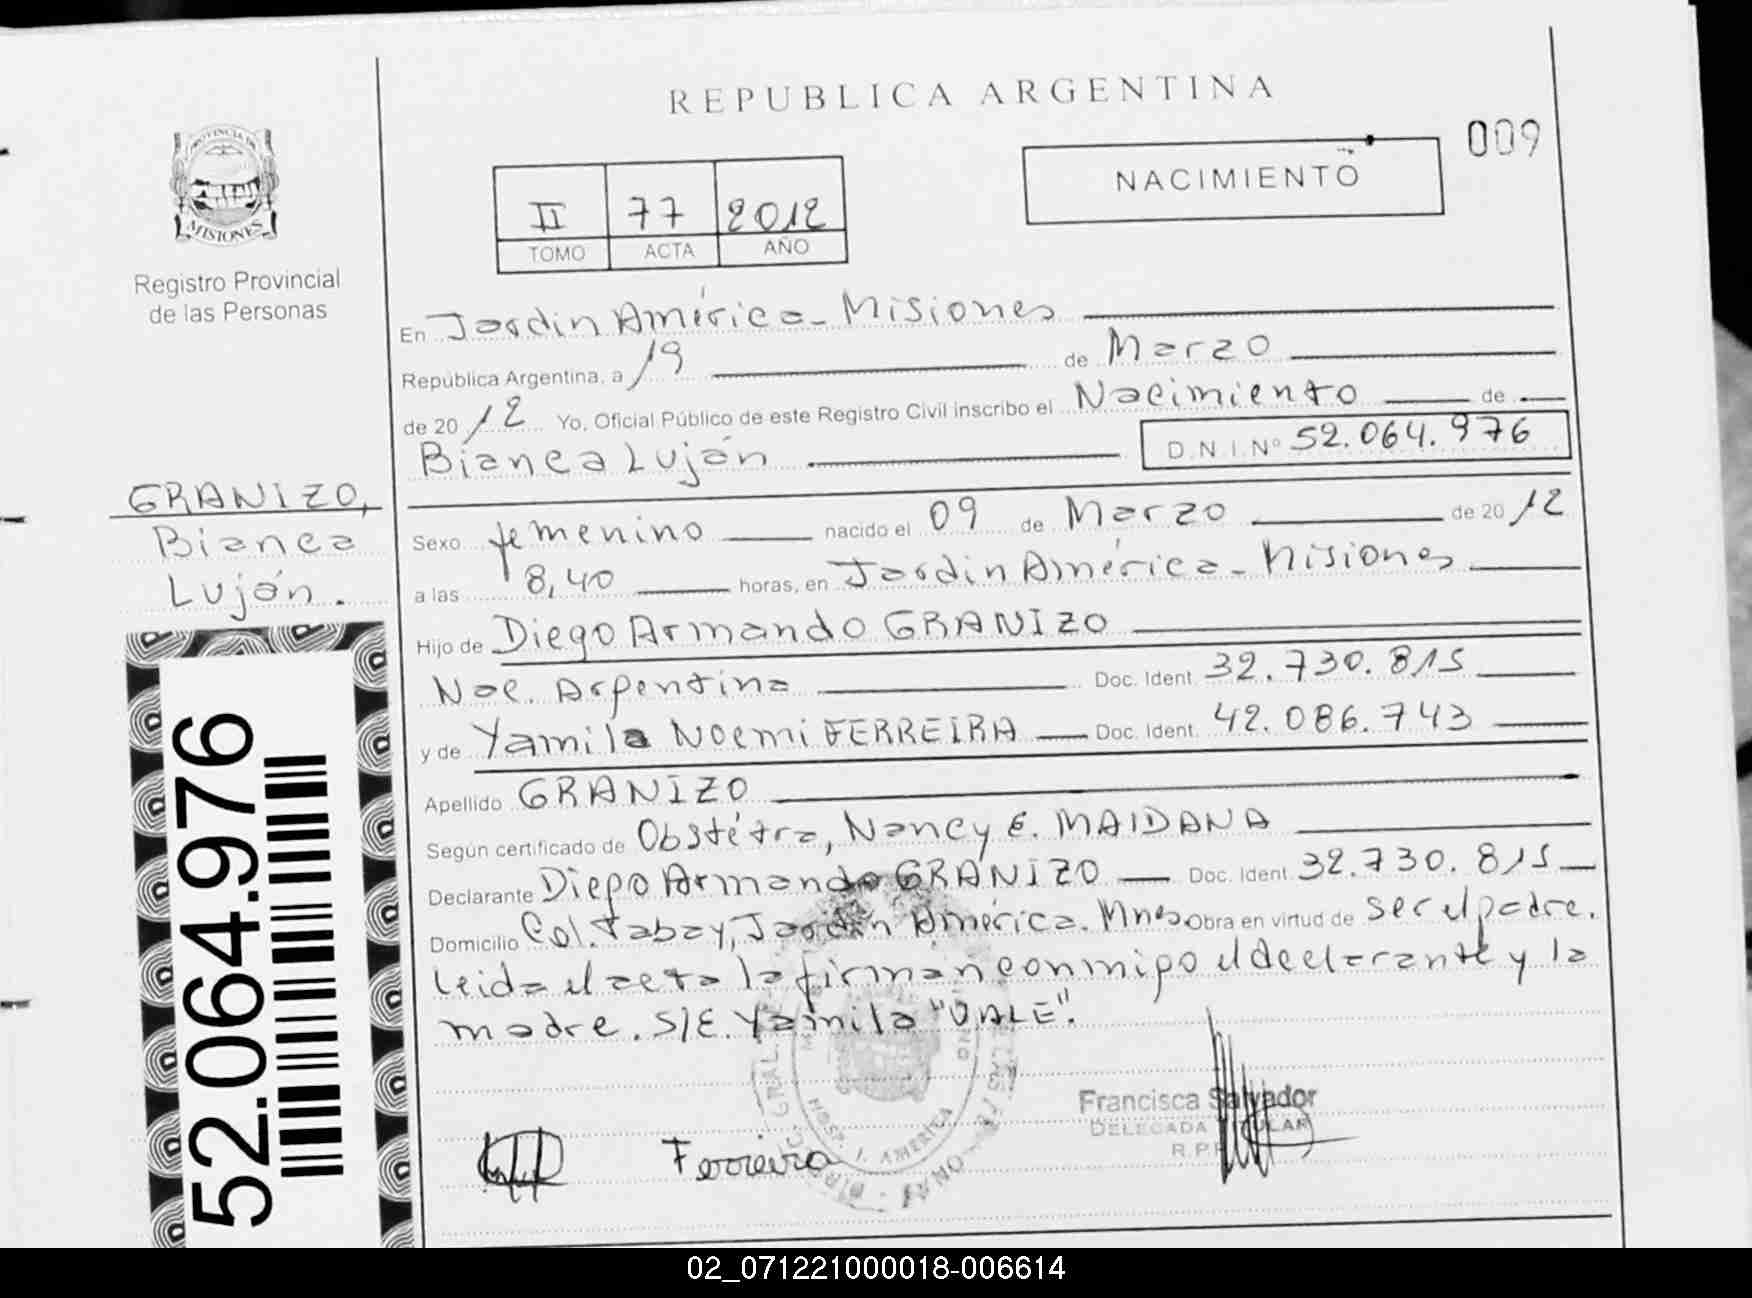 REPUBLICA ARGENTINA
009
NACIMIENTO
PROVINCIA DE
MISIONES
Registro Provincial
de las Personas
II 77 2012
TOMO ACTA AÑO
En Jardin América - Misiones
República Argentina, a 19 de Marzo
de 2012 Yo, Oficial Público de este Registro Civil inscribo el Nacimiento de
Bianca Luján D.N.I.Nº 52.064.976
GRANIZO,
Bianca
Luján.
Sexo femenino nacido el 09 de Marzo de 2012
a las 8,40 horas, en Jardin América - Misiones
Hijo de Diego Armando GRANIZO
Nac. Argentina Doc. Ident. 32.730.815
y de Yamila Noemi FERREIRA Doc. Ident. 42.086.743
Apellido GRANIZO
Según certificado de Obstétra, Nancy E. MAIDANA
Declarante Diego Armando GRANIZO Doc. Ident. 32.730.815
Domicilio Col. Tabay, Jardin América. Mnes Obra en virtud de ser el padre.
Leida el acta la firman conmigo el declarante y la
madre. S/E. Yamila "VALE".
52.064.976
Francisca Salvador
DELEGADA TITULAR
R.P.P.
Ferreira
HOSP. J. AMERICA
02_071221000018-006614